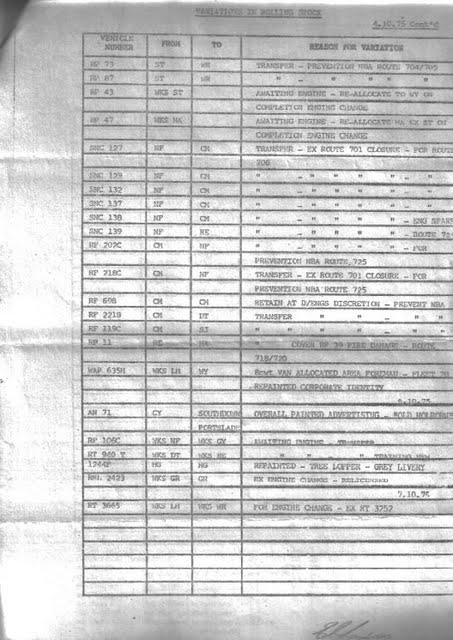 VARIATIONS IN ROLLING STOCK
4.10.75 Cont'd
VEHICLE NUMBER FROM TO REASON FOR VARIATION
RP 73 ST WR TRANSFER - PREVENTION NBA ROUTE 704/705
RP 87 ST WR " - " " " "
RP 43 WKS ST AWAITING ENGINE - RE-ALLOCATE TO WY ON
COMPLETION ENGINE CHANGE
RP 47 WKS HA AWAITING ENGINE - RE-ALLOCATE HA EX ST ON
COMPLETION ENGINE CHANGE
SNC 127 NF CM TRANSFER - EX ROUTE 701 CLOSURE - FOR ROUTE
SNC 129 NF CM " - " " " " - "
SNC 132 NF CM " - " " " " - "
SNC 137 NF CM " - " " " " - "
SNC 138 NF CM " - " " " " - ENG SPARE
SNC 139 NF RE " - " " " " - ROUTE
RF 202C CM NF " - " " " " - FOR
PREVENTION NBA ROUTE 725
RF 218C CM NF TRANSFER - EX ROUTE 701 CLOSURE - FOR
PREVENTION NBA ROUTE 725
RP 69B CM CM RETAIN AT D/ENGS DISCRETION - PREVENT NBA
RF 221B CM DT TRANSFER " " - " "
RF 119C CM SJ " " " " - " "
RP 11 RE HA " COVER RP 39 FIRE DAMAGE - ROUTE
718/720
WAP 635M WKS LH WY 8cwt VAN ALLOCATED AREA FOREMAN - FLEET
REPAINTED CORPORATE IDENTITY
AN 71 GY SOUTHDOWN OVERALL PAINTED ADVERTISING - "OLD HOLBORN"
PORTSLADE
RP 106C WKS NF WKS GY AWAITING ENGINE - TRANSFER
RT 940 T WKS DT WKS RE " " - " TRAINING
1244F HG HG REPAINTED - TREE LOPPER - GREY LIVERY
2423 WKS GR GR EX ENGINE CHANGE - RELICENSED
7.10.75
RT 3665 WKS LH WKS WR FOR ENGINE CHANGE - EX RT 3252